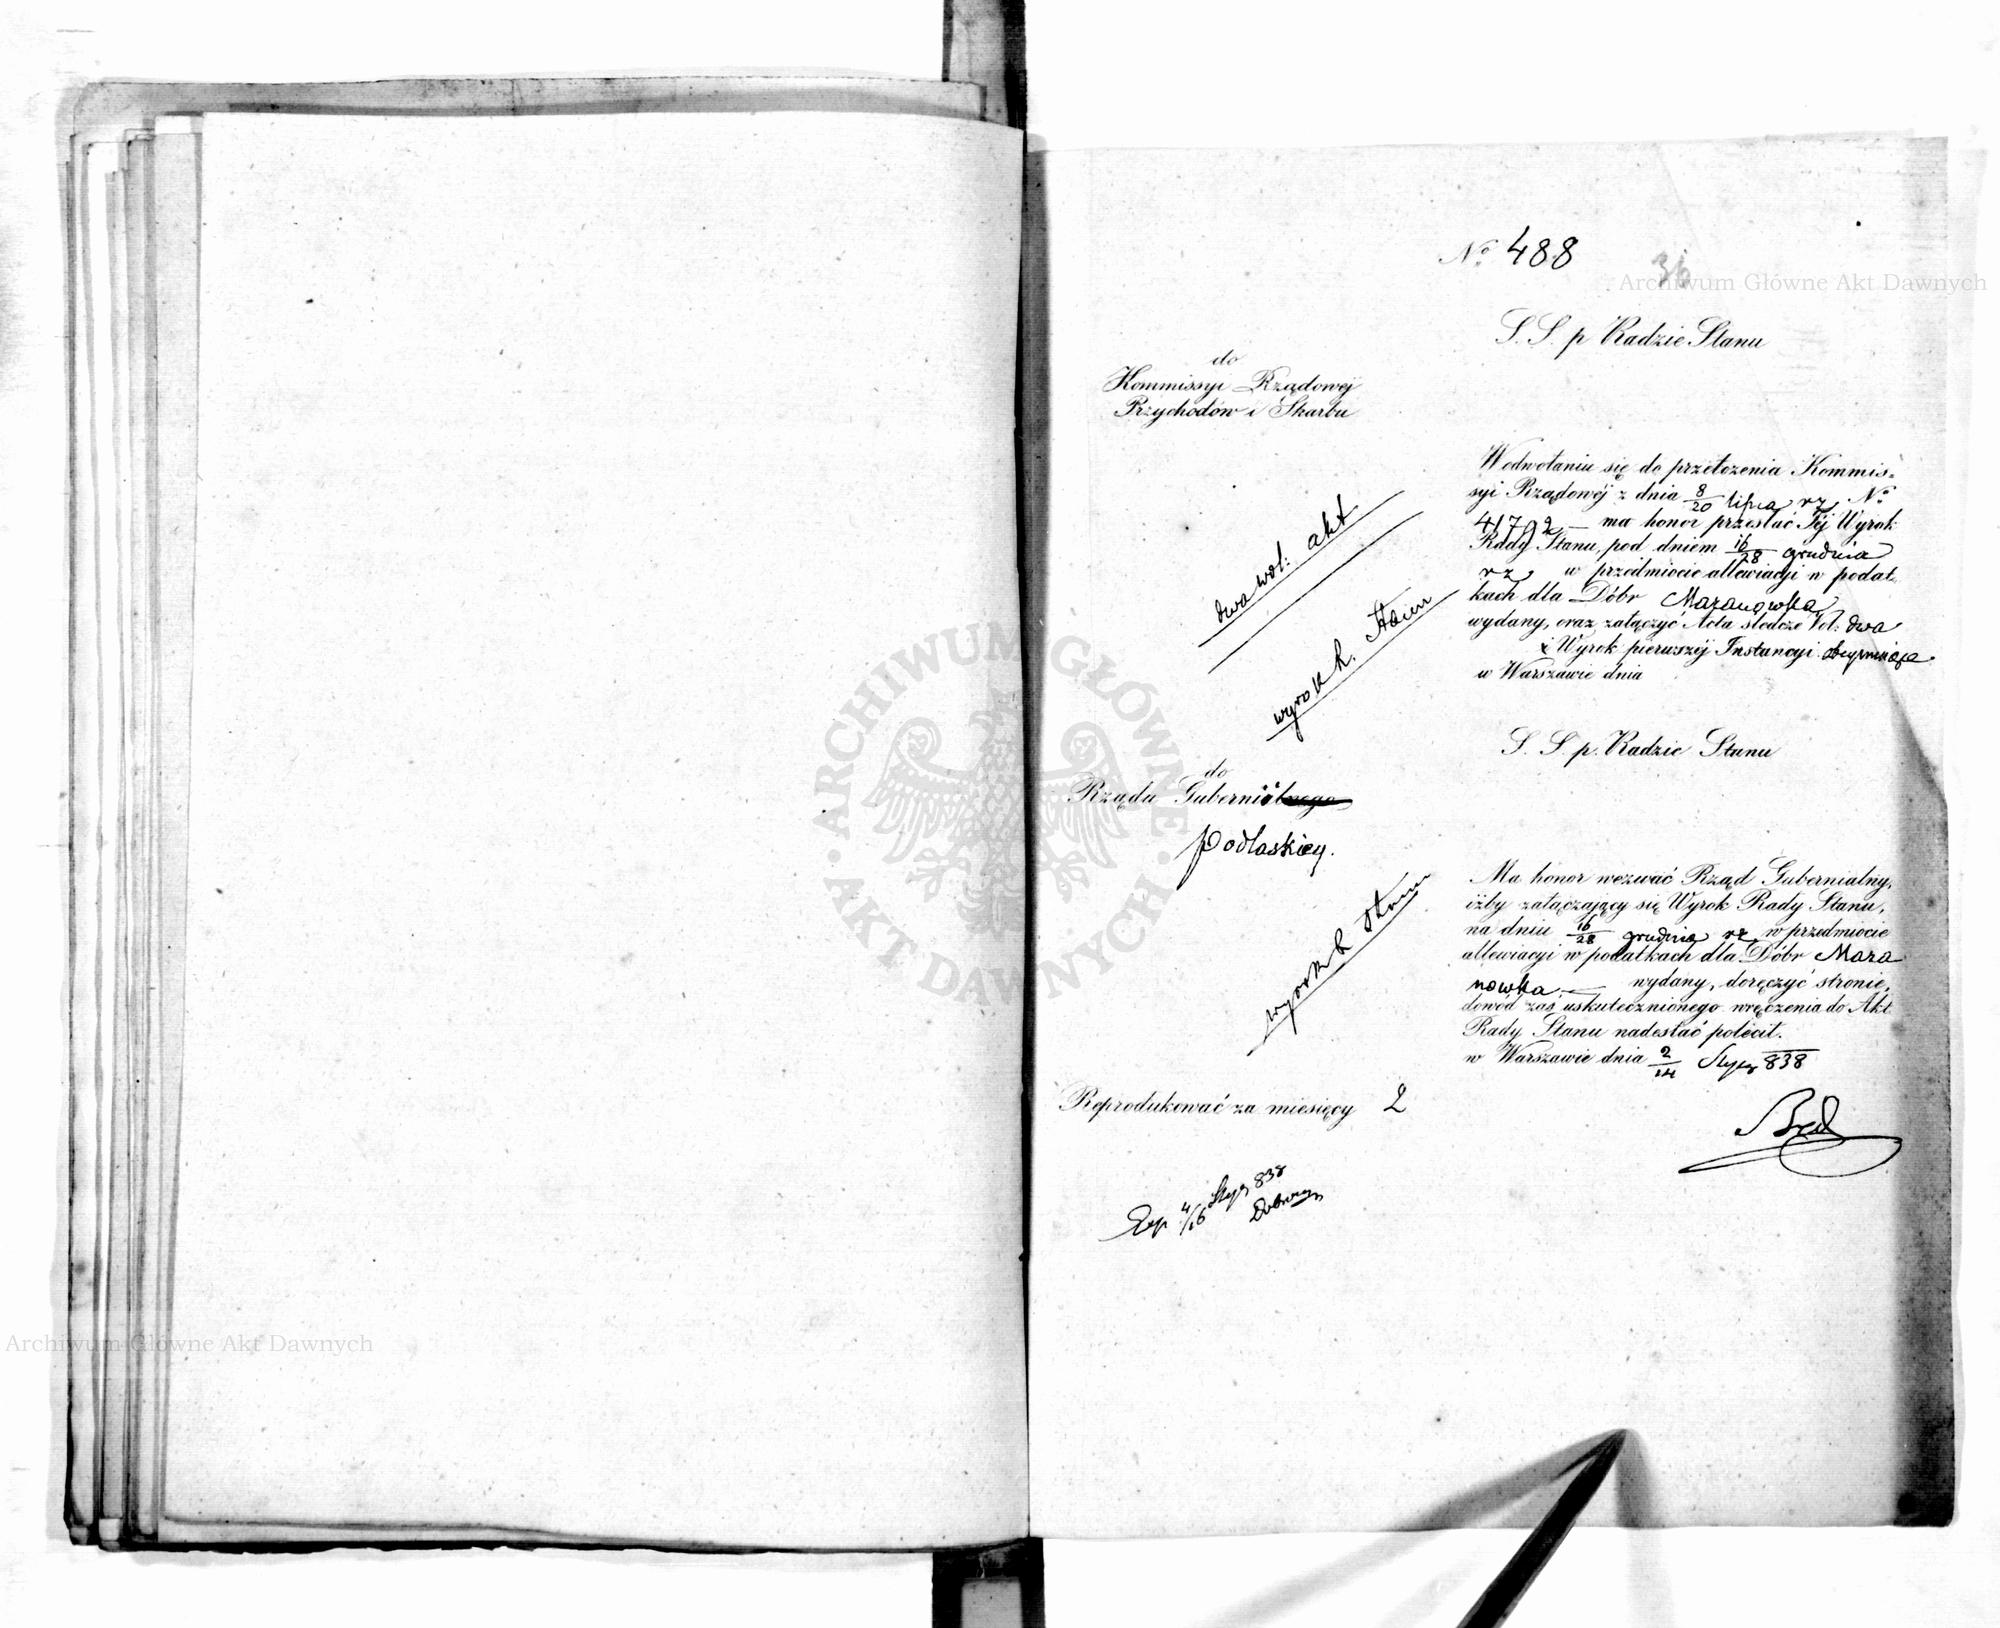 No 488
36
S. S. p Radzie Stanu
do
Kommissyi Rządowéj
Przychodów i Skarbu
W odwołaniu się do przełożenia Kommis=
syi Rządowéj z dnia 8/20 lipca rz No
41792 — ma honor przesłać Téj Wyrok
Rady Stanu, pod dniem 16/28 grudnia
rz w przedmiocie allewiacyi w podat=
kach dla Dóbr Mazanowka
wydany, oraz załączyć Acta śledcze Vol: dwa
i Wyrok pierwszéj Instancyi
w Warszawie dnia
dwa wol: akt
wyrok R. Stanu
S. S. p. Radzie Stanu
do
Rządu Gubernialnego
Podlaskiey.
Ma honor wezwać Rząd Gubernialny,
iżby załączający się Wyrok Rady Stanu,
na dniu 16/28 grudnia rz w przedmiocie
allewiacyi w podatkach dla Dóbr Maza
nowka — wydany, doręczyć stronie,
dowód zaś uskutecznionego wręczenia do Akt
Rady Stanu nadesłać polécił.
w Warszawie dnia 2/14 Stycz 838
wyrok R Stanu
Reprodukować za miesięcy 2
Exp 4/16 Stycz 838
Archiwum Główne Akt Dawnych
Archiwum Główne Akt Dawnych
ARCHIWUM GŁÓWNE · AKT DAWNYCH ·